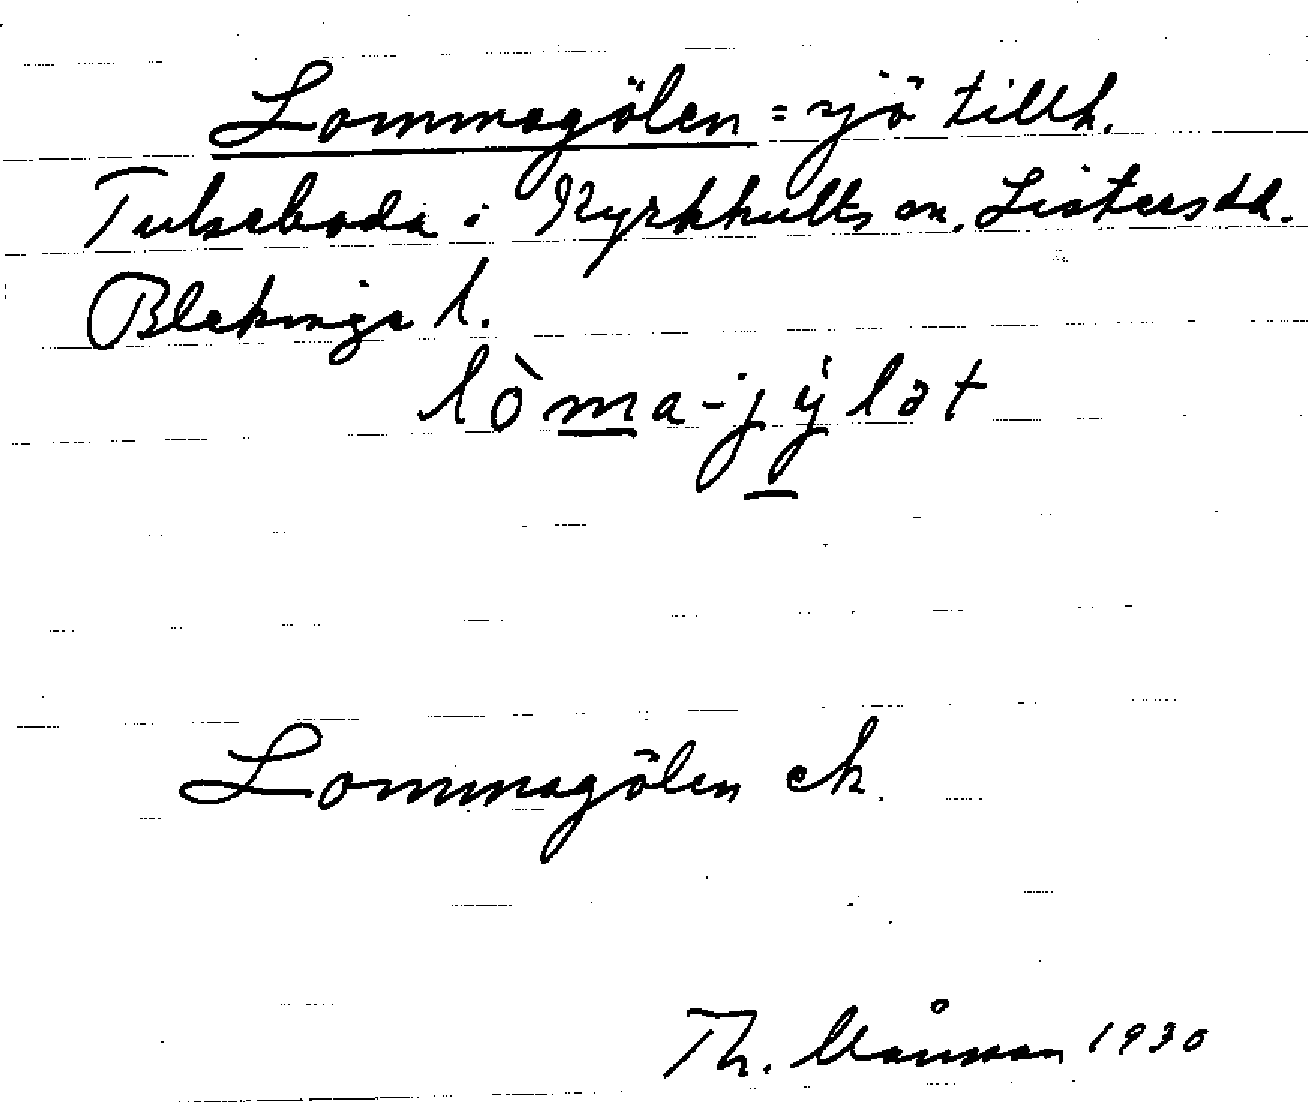 Lommagölen = sjö tillh.
Tulseboda i Kyrkhults sn. Listers hd.
Blekinge l.
lòma-jẏlət
Lommagölen ek.
Th. Månsson 1930